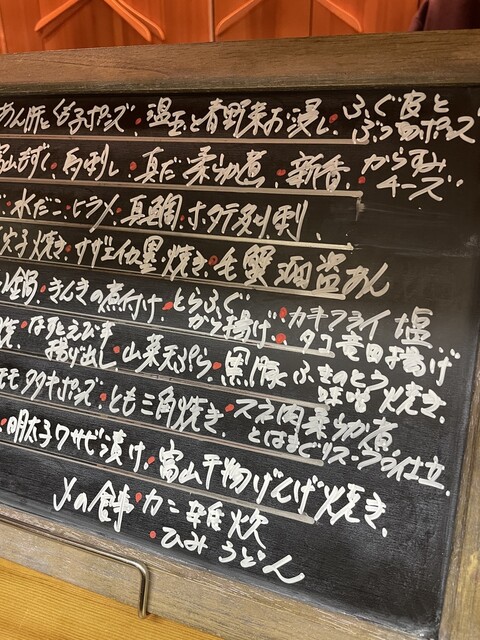 あん肝と白子ポン ズ・温玉と青野菜お浸し・ふぐ皮と
ぶつ切ポン酢
もずく・馬刺し・真だこ柔らか煮・新香・からすみ
チーズ
水だこ・ヒラメ・真鯛・ホタテ 刺
穴子焼き・サザエイカ墨焼き・毛蟹 あん
鍋・きんきの煮付け・とらふぐ
から揚げ・カキフライ 塩
タコ竜田揚げ
焼・なすとえび
揚げ出し・山菜天ぷら・黒豚ふきのとう
味噌焼き
モモタタキポンズ・とも三角焼き・スネ肉柔らか煮
とはまぐりスープ仕立
明太子ワサビ漬け・富山干物げんげ焼き
〆の食事・カニ雑炊
・ひみうどん